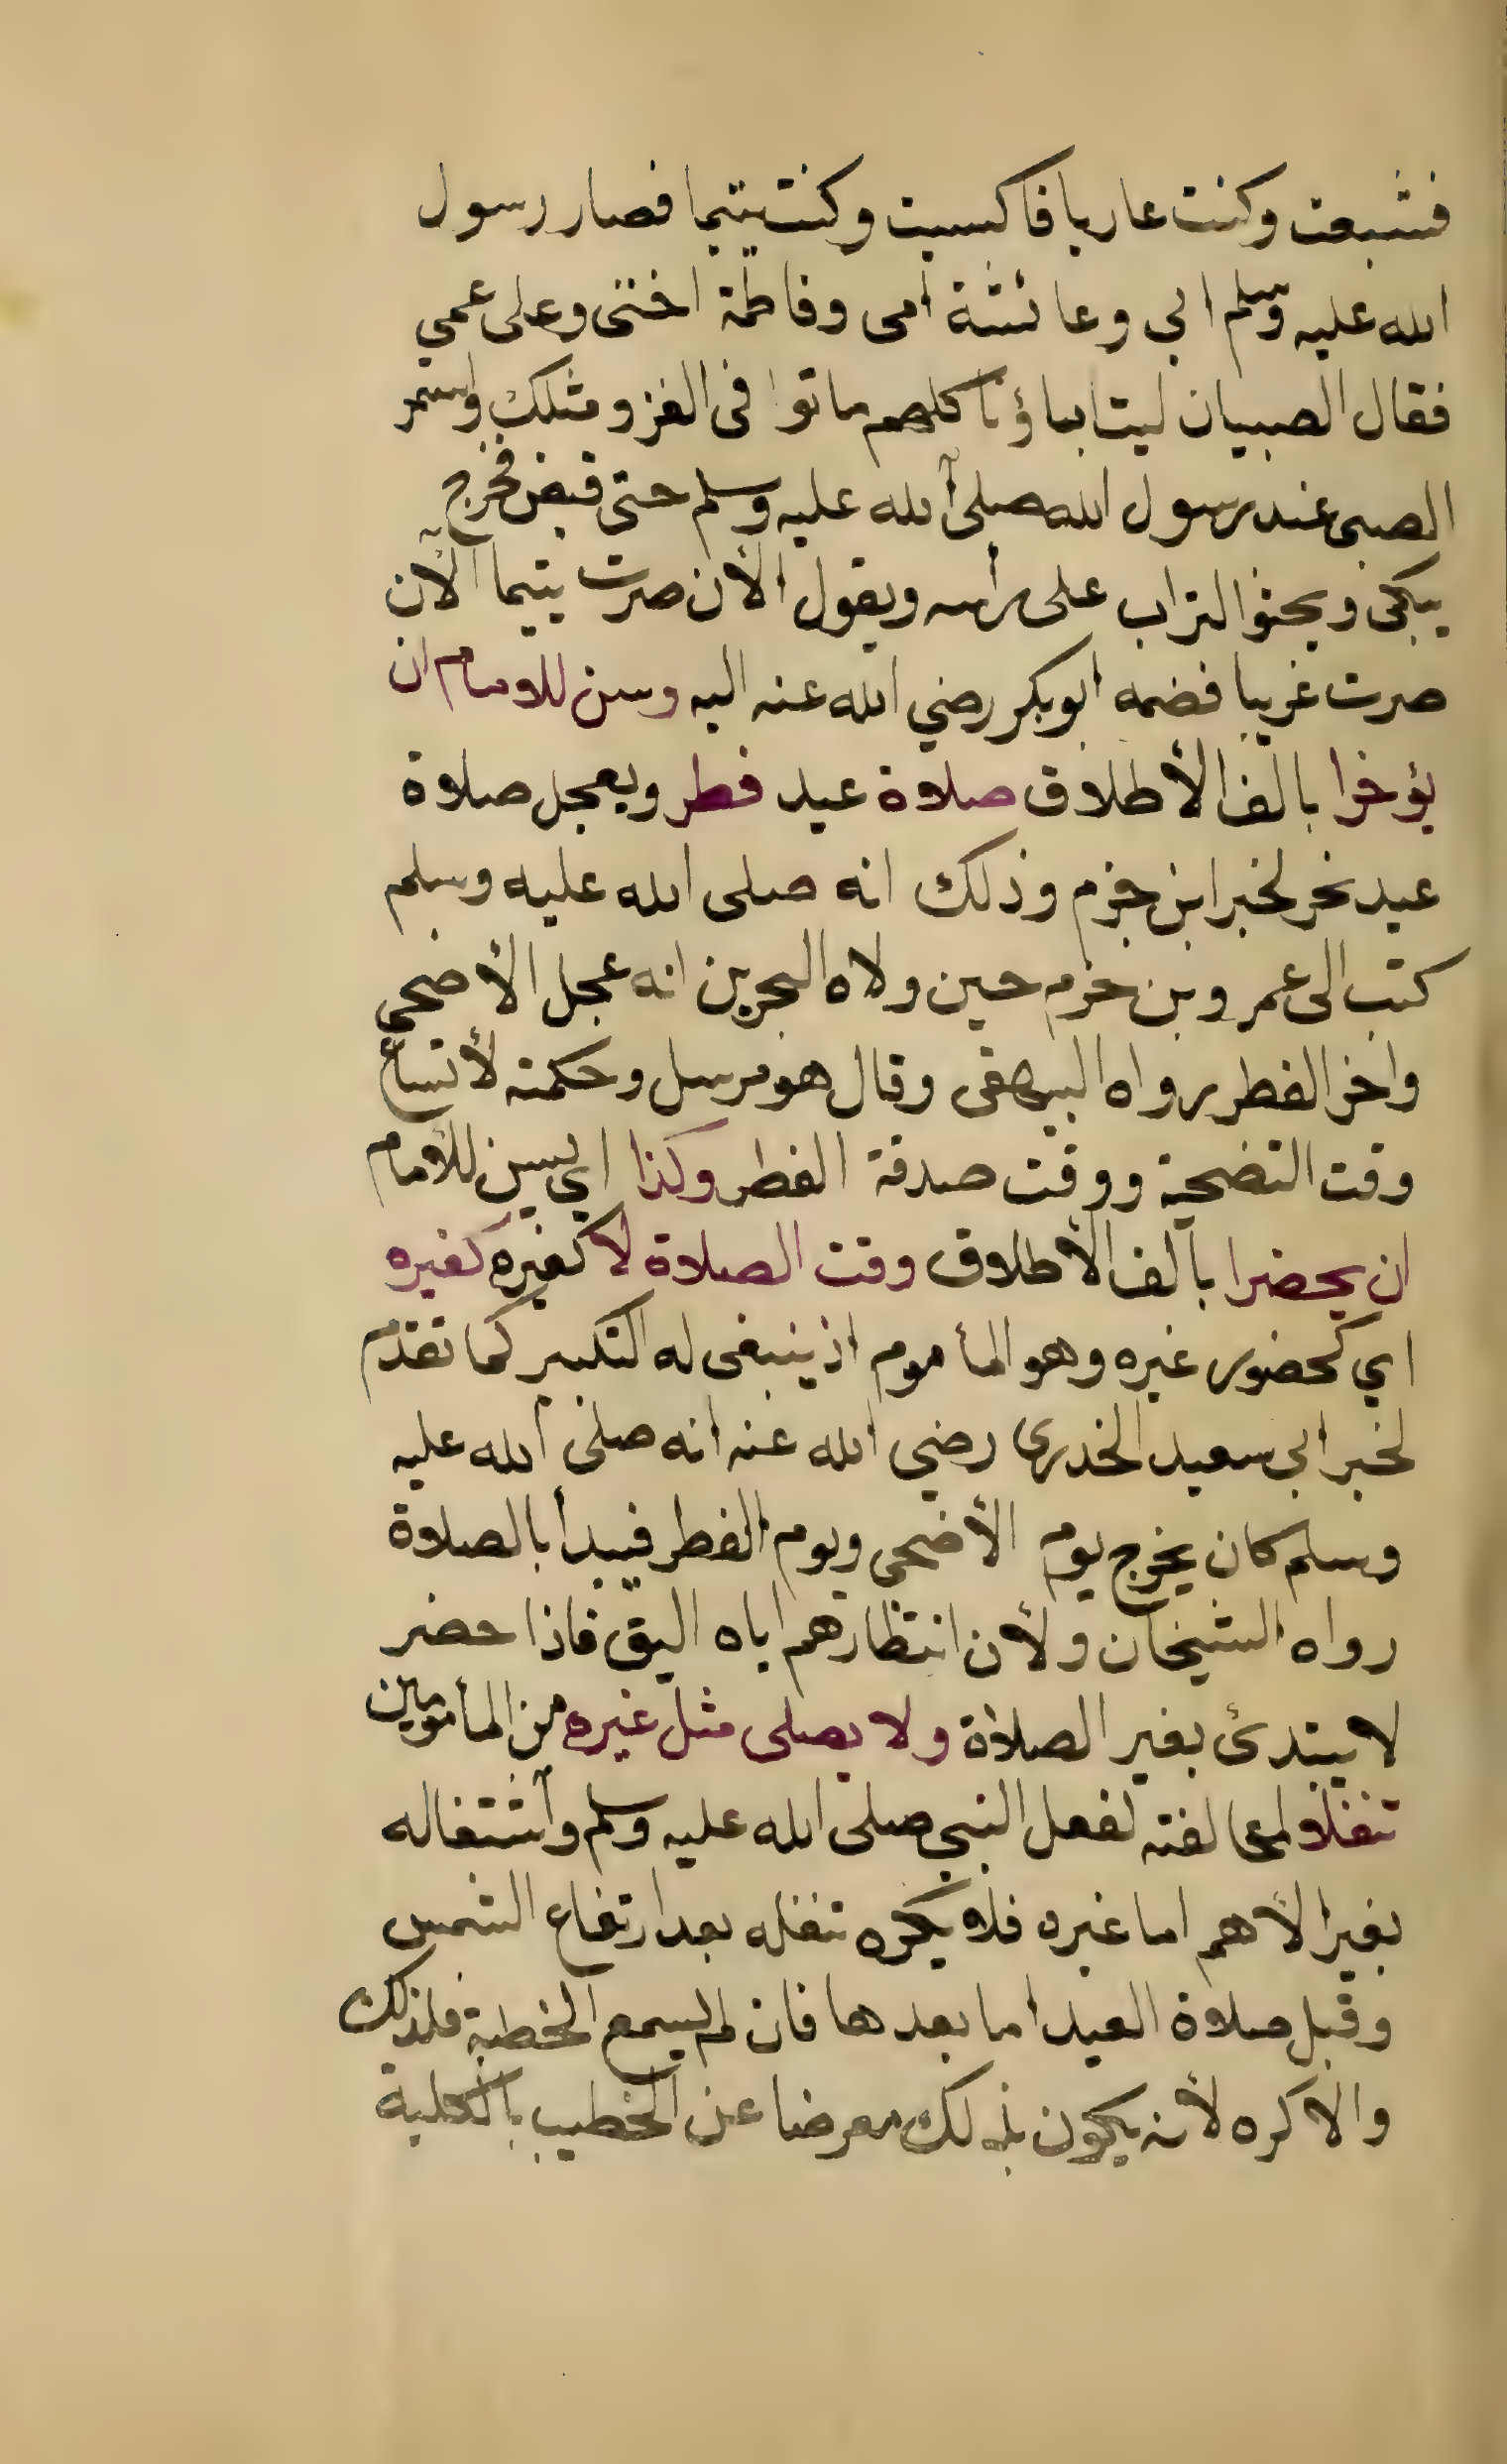 فشبعت وكنت عاريا فاكسيت وكنت يتيما فصار رسول
الله عليه وسلم ابي وعائشة امى وفاطمة اختى وعلى عمي
فقال الصبيان ليتا باؤنا كلهم ماتوا فى الغزو مثلك واستمر
الصبى عند رسول الله صلى الله عليه وسلم حتى قبض فخرج
يبكى ويحثوا التراب على رأسه ويقول الأن صرت يتيما الآن
صرت غريبا فضمه ابوبكر رضي الله عنه اليه وسن للامام ان
يؤخرا بالف الأطلاق صلاة عيد فطر ويعجل صلاة
عيد نحر لخبر ابن حزم وذلك انه صلى الله عليه وسلم
كتب الى عمرو بن حزم حين ولاه البحرين انه عجل الأضحى
واخر الفطر رواه البيهقى وقال هو مرسل وحكمته لأتساع
وقت التضحية ووقت صدقة الفطر وكذا اي يسن للأمام
ان يحضرا بالف الأطلاق وقت الصلاة لا كغيره كغيره
اي كحضور غيره وهو المأموم اذ ينبغى له التكبير كما تقدم
لخبر ابى سعيد الخدرى رضي الله عنه انه صلى الله عليه
وسلم كان يخرج يوم الأضحى ويوم الفطر فيبدأ بالصلاة
رواه الشيخان ولأن انتظارهم اياه اليق فاذا حضر
لا يبتدئ بغير الصلاة ولا يصلى مثل غيره من المأمومين
تنفلا لمخالفته لفعل النبى صلى الله عليه وسلم وأشتغاله
بغير الأهم اما غيره فلا يكره تنفله بعد ارتفاع الشمس
وقبل صلاة العيد اما بعدها فان لم يسمع الخطبة فلذلك
والا كره لأنه يكون بذلك معرضا عن الخطيب بالكلية